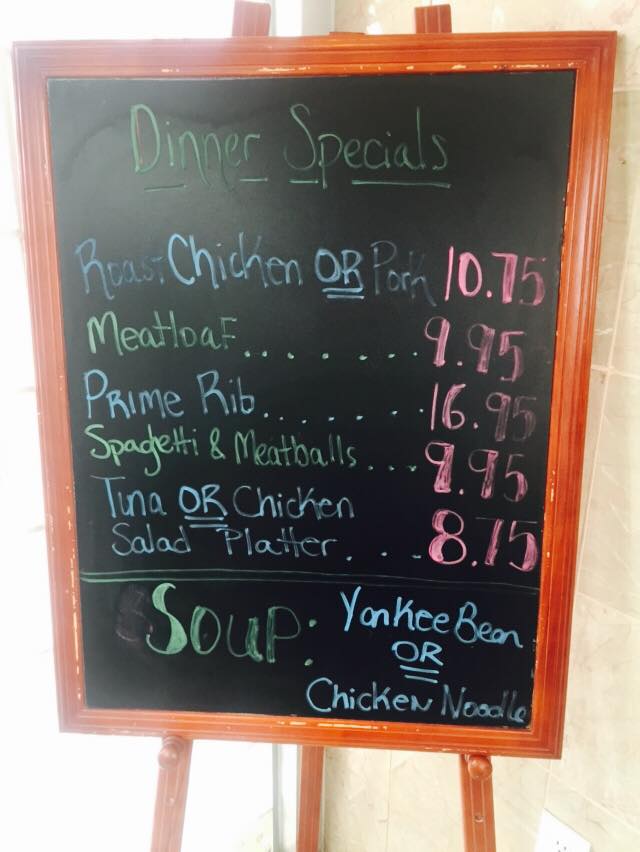 Dinner Specials
Roast Chicken OR Pork 10.75
Meatloaf....... 9.95
Prime Rib....... 16.95
Spaghetti & Meatballs... 9.95
Tuna OR Chicken
Salad Platter... 8.75
Soup: Yankee Bean
OR
Chicken Noodle